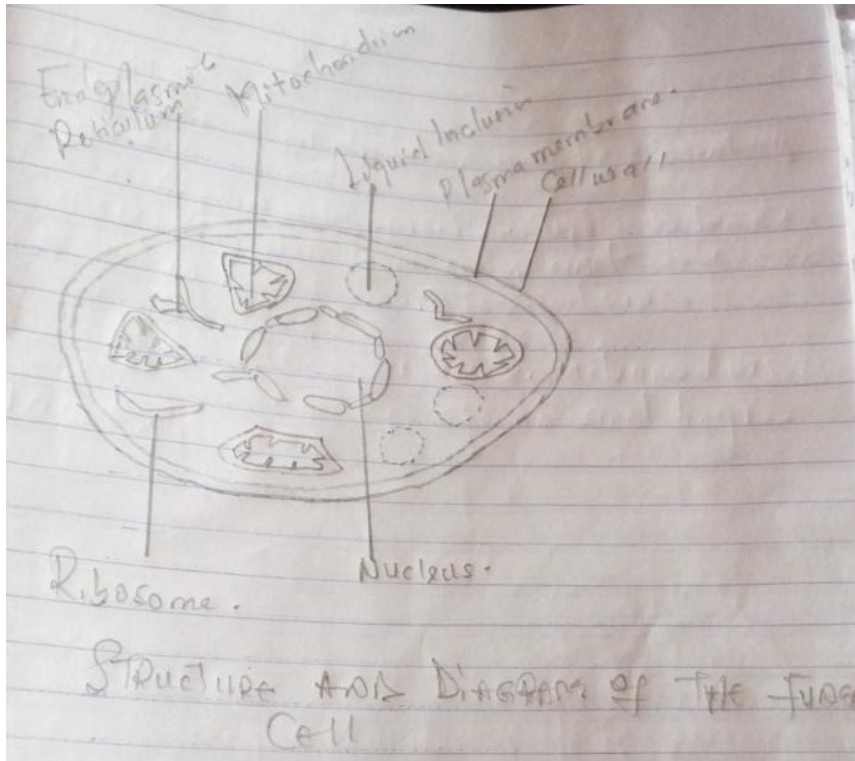 Endoplasmic
Reticulum
Mitochondrium
Liquid Inclusin
Plasma membrane.
Cell wall
Ribosome.
Nucleus.
STRUCTURE AND DIAGRAM OF THE FUNG
Cell